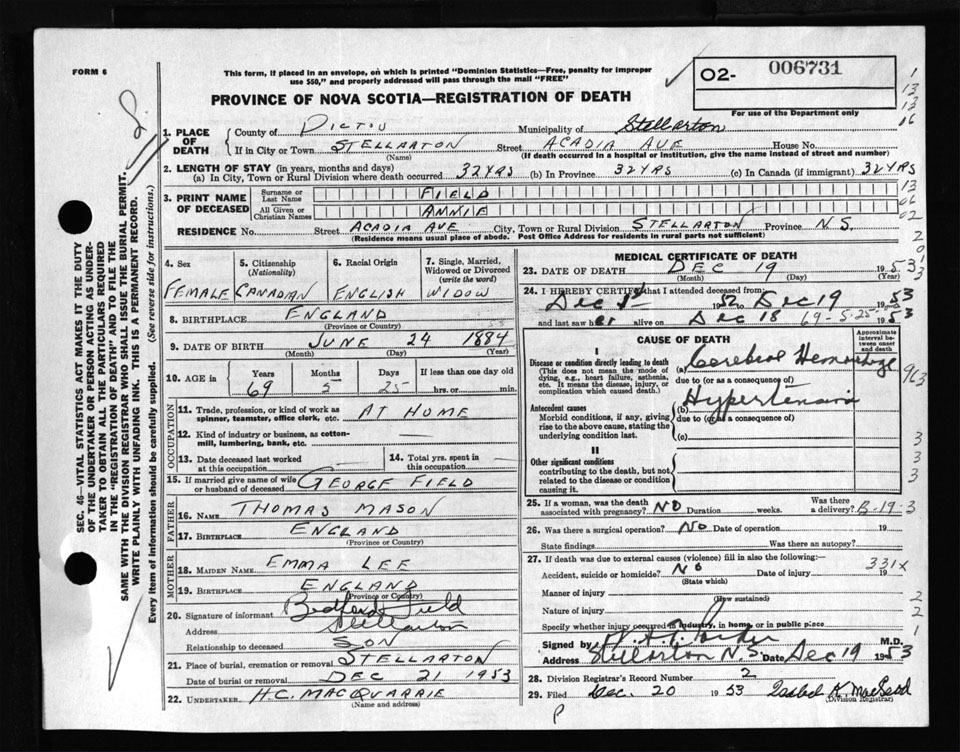 FORM 6
This form, if placed in an envelope, on which is printed "Dominion Statistics—Free, penalty for improper
use $50," and properly addressed will pass through the mail "FREE"
PROVINCE OF NOVA SCOTIA—REGISTRATION OF DEATH
02- 006731
For use of the Department only
1. PLACE OF DEATH
County of PICTOU Municipality of Stellarton
If in City or Town STELLARTON Street ACADIA AVE House No.
(Name) (If death occurred in a hospital or institution, give the name instead of street and number)
2. LENGTH OF STAY (in years, months and days)
(a) In City, Town or Rural Division where death occurred 32 YRS (b) In Province 32 YRS (c) In Canada (if immigrant) 32 YRS
3. PRINT NAME OF DECEASED
Surname or Last Name FIELD
All Given or Christian Names ANNIE
RESIDENCE No. Street ACADIA AVE City, Town or Rural Division STELLARTON Province N.S.
(Residence means usual place of abode. Post Office Address for residents in rural parts not sufficient)
4. Sex 5. Citizenship (Nationality) 6. Racial Origin 7. Single, Married, Widowed or Divorced (write the word)
FEMALE CANADIAN ENGLISH WIDOW
8. BIRTHPLACE ENGLAND
(Province or Country)
9. DATE OF BIRTH JUNE 24 1884
(Month) (Day) (Year)
10. AGE in Years Months Days If less than one day old
69 5 25 hrs. or min.
OCCUPATION
11. Trade, profession, or kind of work as spinner, teamster, office clerk, etc. AT HOME
12. Kind of industry or business, as cotton-mill, lumbering, bank, etc. —
13. Date deceased last worked at this occupation — 14. Total yrs. spent in this occupation —
15. If married give name of wife or husband of deceased GEORGE FIELD
FATHER
16. NAME THOMAS MASON
17. BIRTHPLACE ENGLAND
(Province or Country)
MOTHER
18. MAIDEN NAME EMMA LEE
19. BIRTHPLACE ENGLAND
(Province or Country)
20. Signature of informant Bedford Field
Address Stellarton
Relationship to deceased SON
21. Place of burial, cremation or removal STELLARTON
Date of burial or removal DEC 21 1953
22. UNDERTAKER H.C. MACQUARRIE
(Name and address)
MEDICAL CERTIFICATE OF DEATH
23. DATE OF DEATH DEC 19 1953
(Month) (Day)
24. I HEREBY CERTIFY that I attended deceased from:
Dec 52 to Dec 19 1953
and last saw her alive on Dec 18 69-5-25 1953
CAUSE OF DEATH
Approximate interval between onset and death
I
Disease or condition directly leading to death
(This does not mean the mode of dying, e.g., heart failure, asthenia, etc. It means the disease, injury, or complication which caused death.)
(a) Cerebral Hemorrhage
due to (or as a consequence of)
Antecedent causes
Morbid conditions, if any, giving rise to the above cause, stating the underlying condition last.
(b) Hypertension
due to (or as a consequence of)
(c)
II
Other significant conditions
contributing to the death, but not related to the disease or condition causing it.
25. If a woman, was the death associated with pregnancy? NO Duration weeks. Was there a delivery? B-19-3
26. Was there a surgical operation? NO Date of operation 19
State findings Was there an autopsy?
27. If death was due to external causes (violence) fill in also the following:—
Accident, suicide or homicide? NO Date of injury 19
331x
(State which)
Manner of injury
(How sustained)
Nature of injury
Specify whether injury occurred in industry, in home, or in public place
Signed by M.D.
Address Stellarton N.S. Date Dec 19 1953
28. Division Registrar's Record Number 2
29. Filed Dec. 20 1953 Isabel K. MacLeod
(Division Registrar)
SEC. 46—VITAL STATISTICS ACT MAKES IT THE DUTY
OF THE UNDERTAKER OR PERSON ACTING AS UNDER-
TAKER TO OBTAIN ALL THE PARTICULARS REQUIRED
IN THE "REGISTRATION OF DEATH" AND TO FILE THE
SAME WITH THE DIVISION REGISTRAR WHO SHALL ISSUE THE BURIAL PERMIT.
WRITE PLAINLY WITH UNFADING INK. THIS IS A PERMANENT RECORD.
Every item of information should be carefully supplied. (See reverse side for instructions.)
1
13
13
16
13
06
02
2
0
3
963
3
3
3
2
2
1